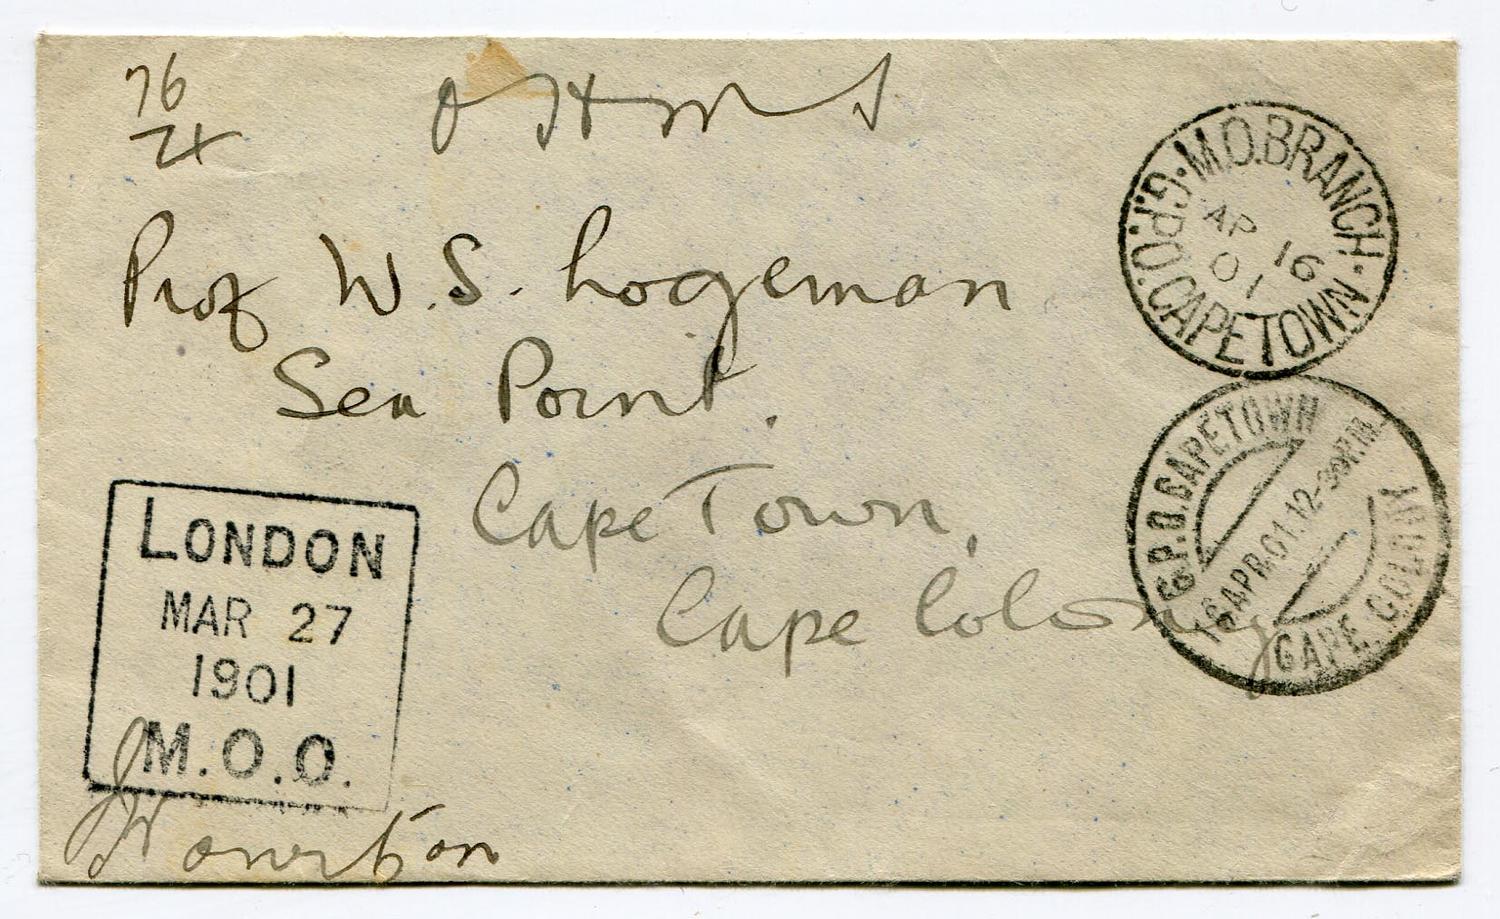 76
O H M S
Prof W. S. Logeman
Sea Point.
Cape Town,
Cape Colony
G.P.O. CAPETOWN · M.O. BRANCH ·
AP 16
01
G.P.O. CAPETOWN
16 APR 01. 12-30PM
CAPE COLONY
LONDON
MAR 27
1901
M.O.O.